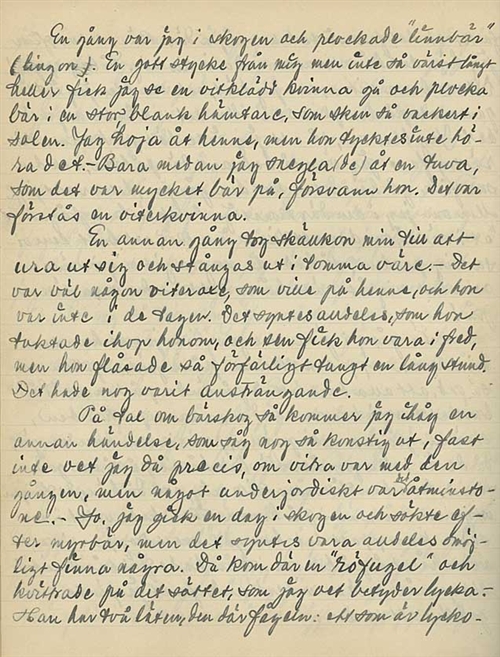 En gång var jag i skogen och plockade "linnbär"
(lingon). En gott stycke från mig men inte så värst långt
heller fick jag se en vitklädd kvinna gå och plocka
bär i en stor blank hämtare, som sken så vackert i
solen. Jag hoja åt henne, men hon tycktes inte hö-
ra det. - Bara medan jag snegla(de) åt en tuva,
som det var mycket bär på, försvann hon. Det var
förstås en viterkvinna.
En annan gång tog skällkon min till att
ura ut sig och stångas ut i tomma väre. - Det
var väl någon viteroxe, som ville på henne, och hon
var inte i de tagen. Det syntes alldeles, som hon
taktade ihop honom, och sen fick hon vara i fred,
men hon flåsade så förfärligt tungt en lång stund.
Det hade nog varit ansträngande.
På tal om bärskog så kommer jag ihåg en
annan händelse, som såg nog så konstig ut, fast
inte vet jag då precis, om vitra var med den
gången, men något underjordiskt var det åtminsto-
ne. - Jo, jag gick en dag i skogen och sökte ef-
ter myrbär, men det syntes vara alldeles omöj-
ligt finna några. Då kom där en "röfugel" och
kvittrade på det sättet, som jag vet betyder lycka.
Han har två läten, den där fageln: ett som är lycko-